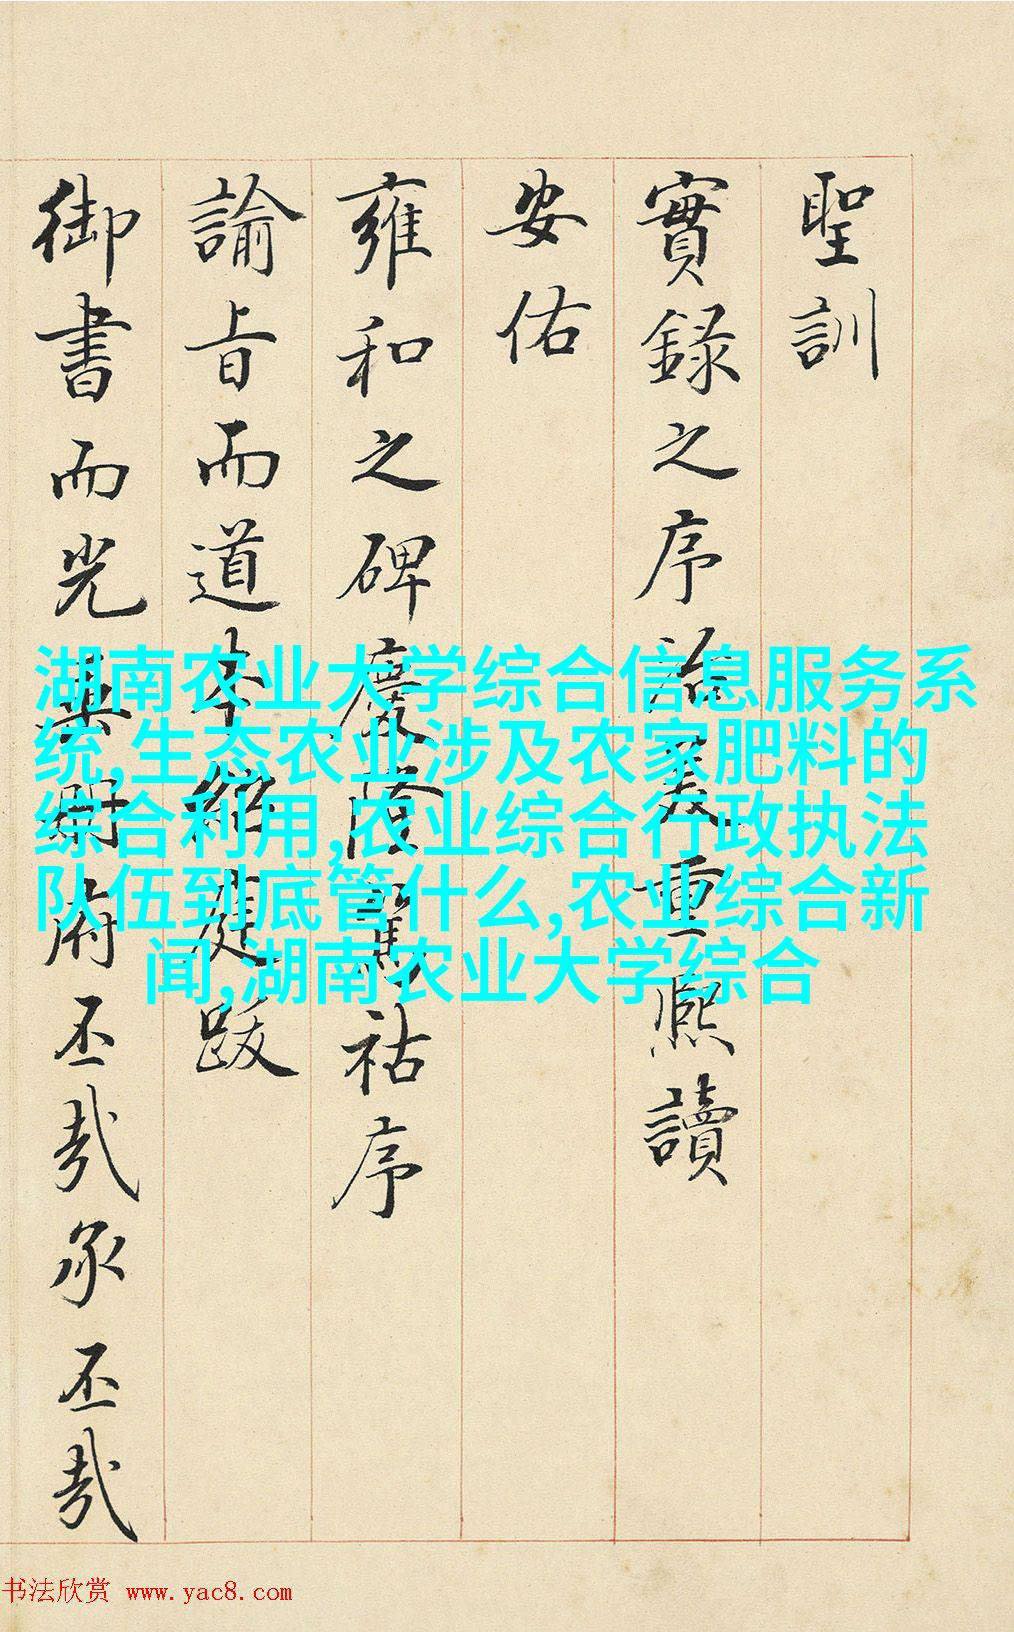 聖訓
實錄之序詒美重熈讀
安佑
雍和之碑慶蔭舊祜序
諭旨而道本紹庭跋
御書而光典冊府丕哉承丕哉
湖南农业大学综合信息服务系
统,生态农业涉及农家肥料的
综合利用,农业综合行政执法
队伍到底管什么,农业综合新
闻,湖南农业大学综合
书法欣赏 www.yac8.com